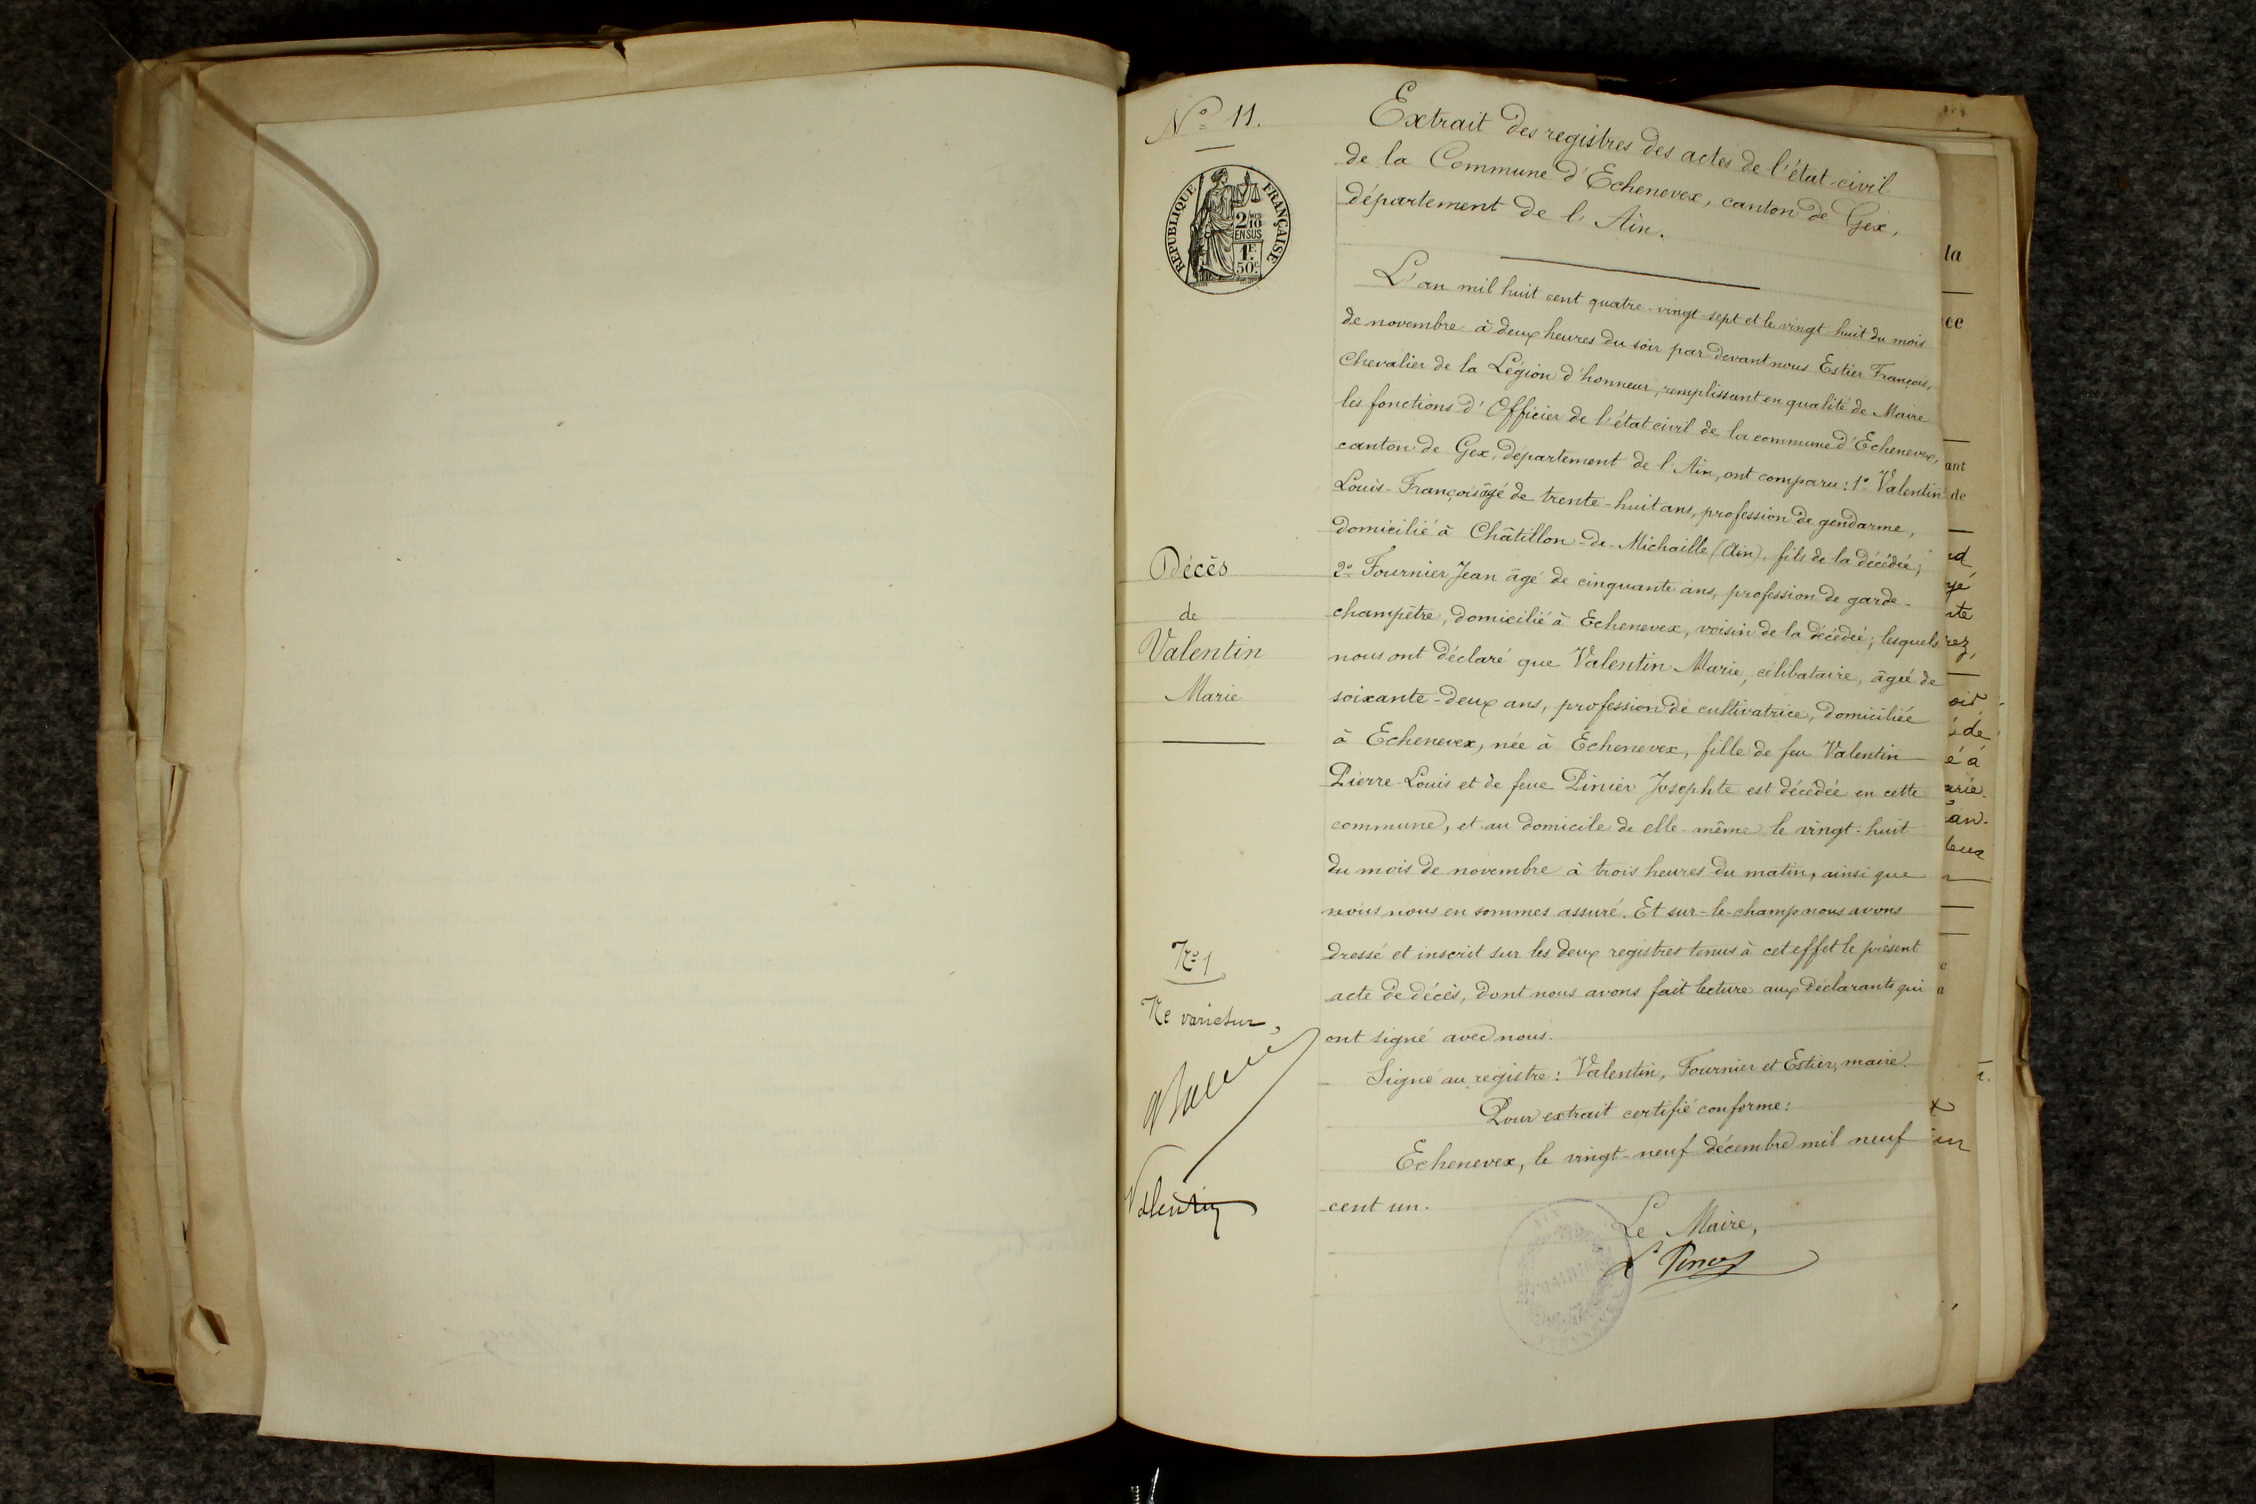 Nº 11.
RÉPUBLIQUE FRANÇAISE
2/10
EN SUS
1F
50c
Extrait des registres des actes de l'état-civil
de la Commune d'Echenevex, canton de Gex,
département de l'Ain.
L'an mil huit cent quatre-vingt-sept et le vingt-huit du mois
de novembre à deux heures du soir par-devant nous Estier François,
Chevalier de la Légion d'honneur, remplissant en qualité de Maire
les fonctions d'Officier de l'état civil de la commune d'Echenevex,
canton de Gex, département de l'Ain, ont comparu: 1º Valentin
Louis-François âgé de trente-huit ans, profession de gendarme,
domicilié à Châtillon-de-Michaille (Ain), fils de la décédée;
2º Fournier Jean âgé de cinquante ans, profession de garde-
champêtre, domicilié à Echenevex, voisin de la décédée; lesquels
nous ont déclaré que Valentin Marie, célibataire, âgée de
soixante-deux ans, profession de cultivatrice, domiciliée
à Echenevex, née à Echenevex, fille de feu Valentin
Pierre-Louis et de feue Pinier Josephte est décédée en cette
commune, et au domicile de elle-même le vingt-huit
du mois de novembre à trois heures du matin, ainsi que
nous nous en sommes assuré. Et sur-le-champ nous avons
dressé et inscrit sur les deux registres tenus à cet effet le présent
acte de décès, dont nous avons fait lecture aux déclarants qui
ont signé avec nous.
Signé au registre: Valentin, Fournier et Estier, maire.
Pour extrait certifié conforme:
Echenevex, le vingt-neuf décembre mil neuf
cent un.
Le Maire,
Décès
de
Valentin
Marie
Nº 1
Ne varietur,
Valentin
la
ant
de